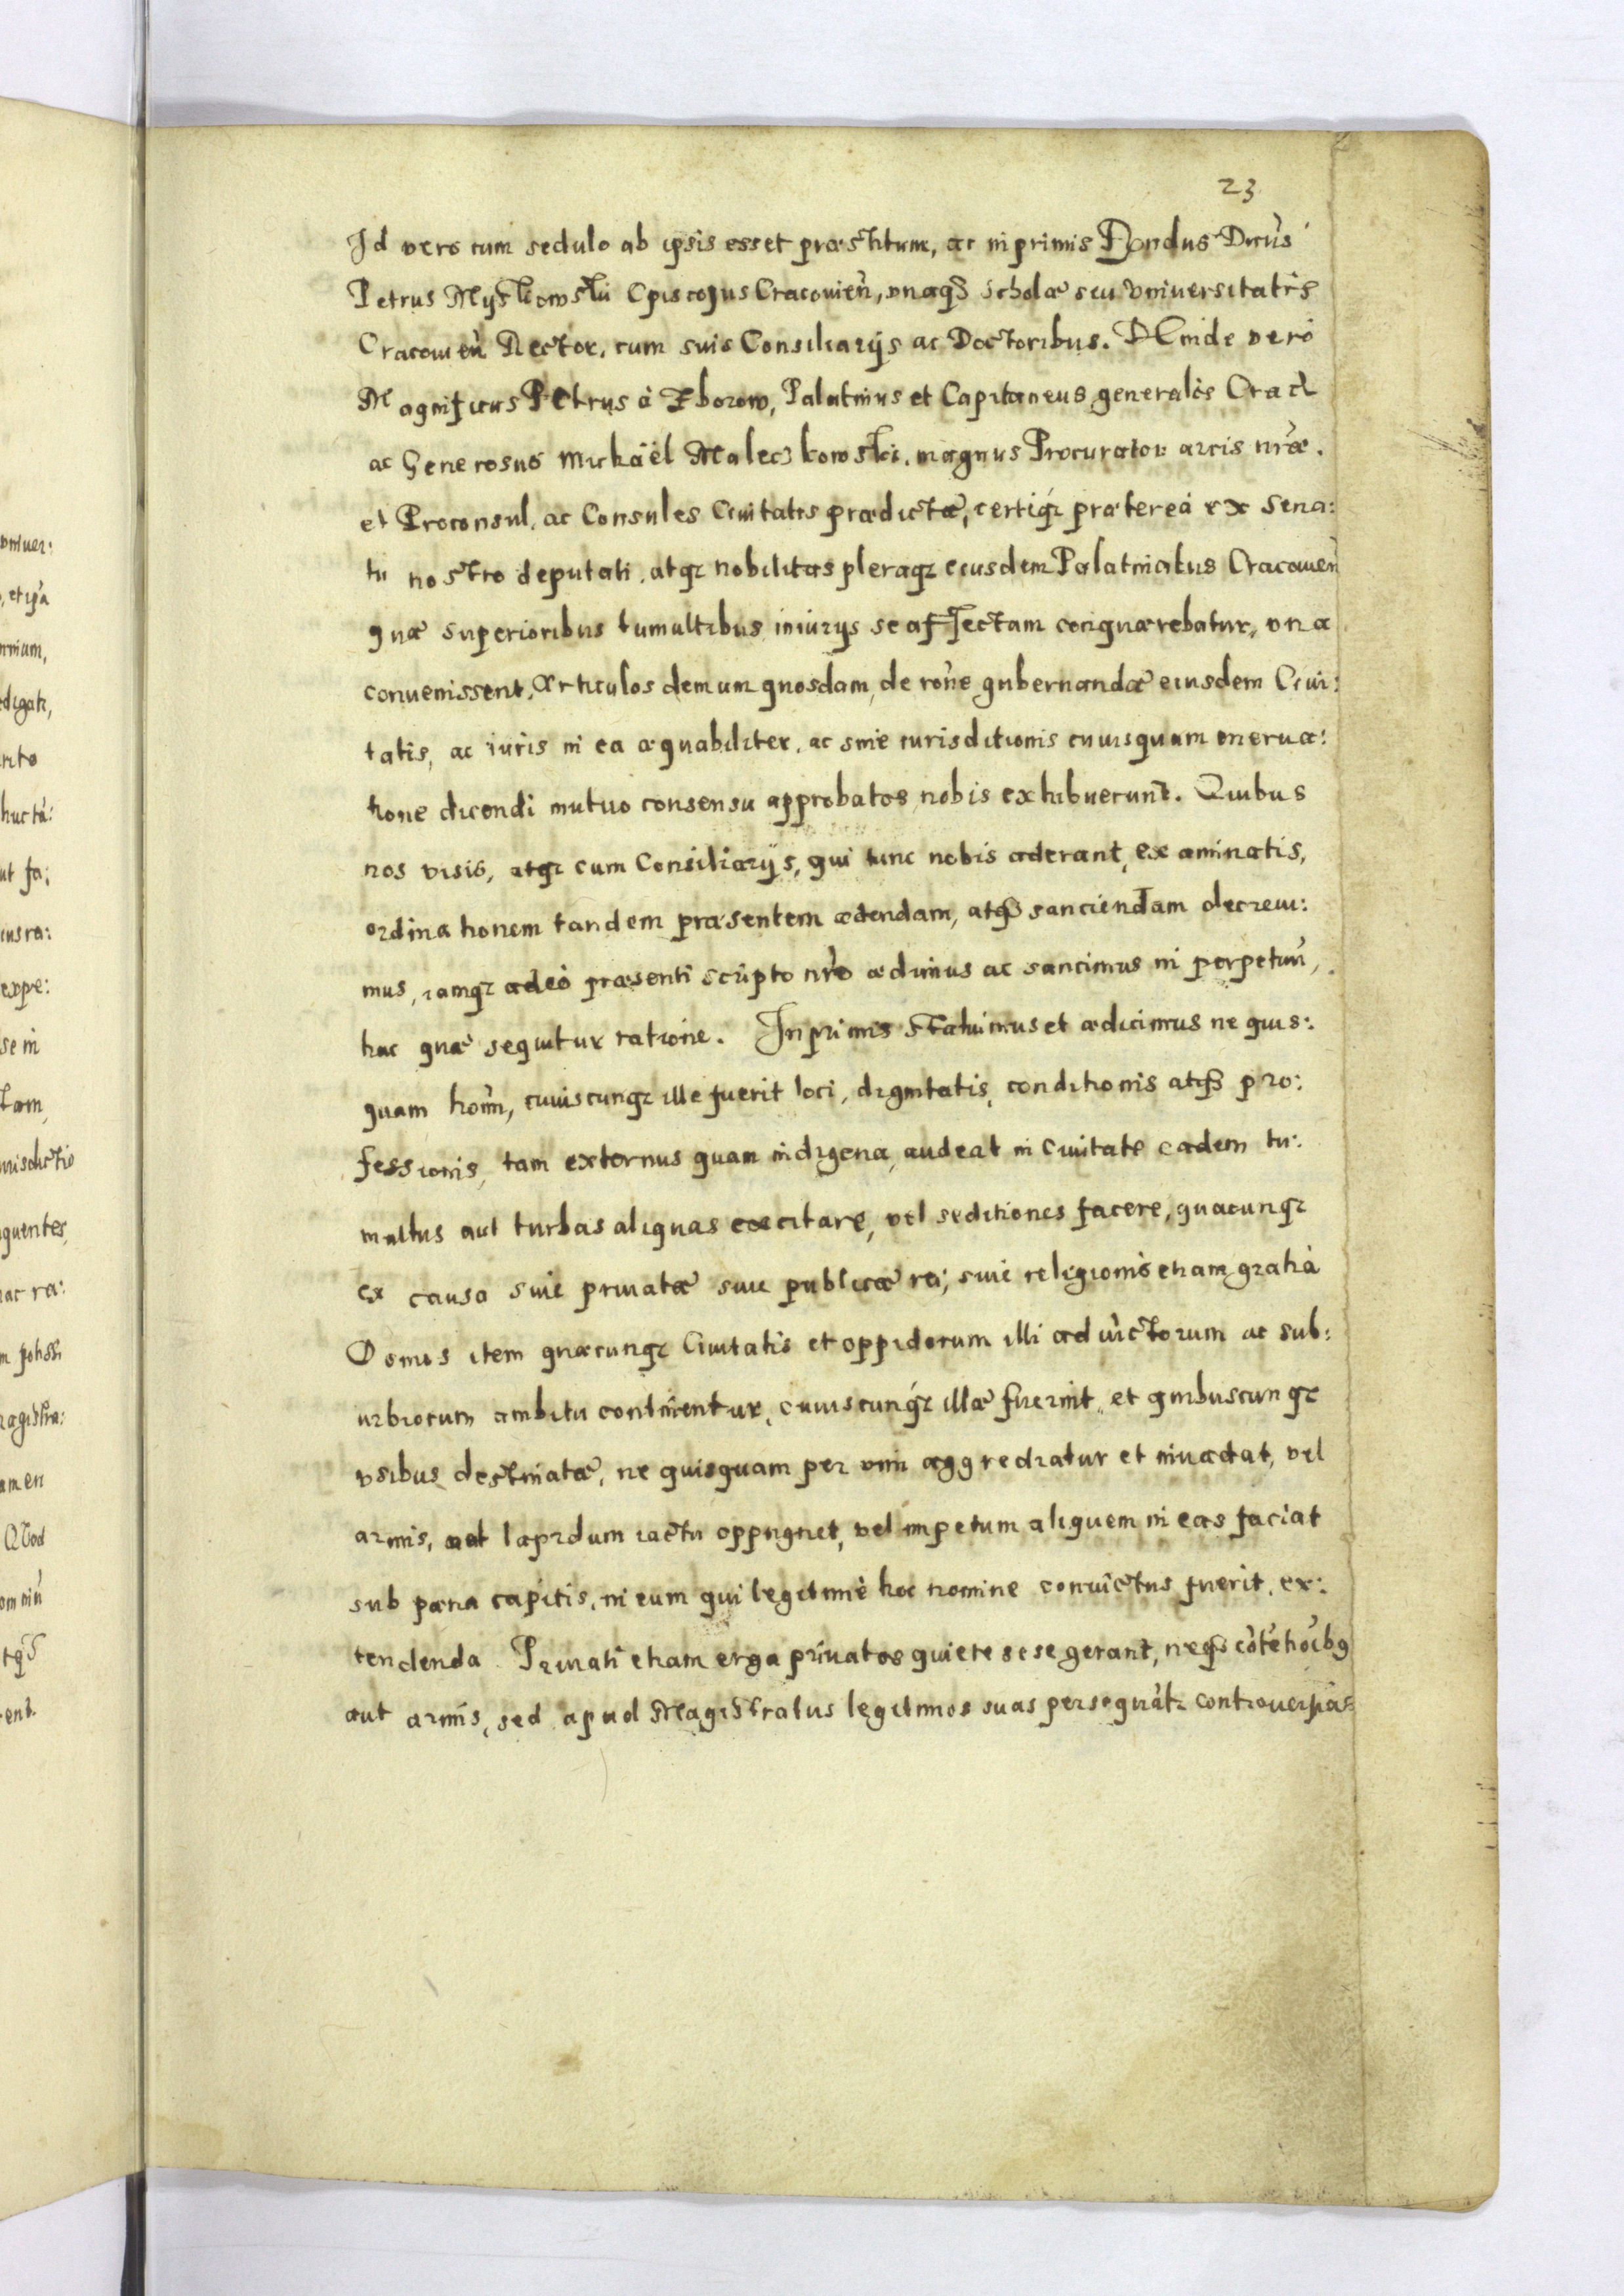 23
Id vero cum sedulo ab ipsis esset præstitum, ac inprimis Rendus Dnus
Petrus Myszkowski Episcopus Cracouien, vnaqz scholæ seu vniuersitatis
Cracouien Rector, cum suis Consiliarijs ac Doctoribus. DEinde vero
Magnificus PEtrus à Zborow, Palatinus et Capitaneus generalis Crac
ac Generosus Michaël Maleczkowski, magnus Procurator arcis nræ.
et Proconsul, ac Consules Ciuitatis prædictæ, certiqz præterea ex Sena:
tu nostro deputati, atqz nobilitas pleraqz eiusdem Palatinatus Cracouien
quæ superioribus tumultibus iniurijs se affectam conquærebatur, vna
conuenissent, Articulos demum quosdam, de rone gubernandæ eiusdem Ciui:
tatis, ac iuris in ea æquabiliter, ac sine iurisditionis cuiusquam eneruа:
tione dicendi mutuo consensu approbatos nobis exhibuerunt. Quibus
nos visis, atqz cum Consiliarijs, qui tunc nobis aderant, examinatis,
ordinationem tandem præsentem ædendam, atqz sanciendam decreui:
mus, iamqz adeò præsenti scripto nro ædimus ac sancimus in perpetuu,
hac quæ sequitur ratione. Inprimis statuimus et ædicimus ne quis:
quam hoim, cuiuscunqz ille fuerit loci, dignitatis, conditionis atqz pro:
fessionis, tam externus quam indigena, audeat in Ciuitate eadem tu:
multus aut turbas aliquas excitare, vel seditiones facere, quacunqz
ex causa siue priuatæ siue publicæ rei, siue religionis etiam gratià
Domos item quæcunqz Ciuitatis et oppidorum illi adiunctorum ac sub:
urbiorum ambitu continentur, cuiuscunqz illæ fuerint, et quibuscunqz
vsibus destinatæ, ne quisquam per vim aggrediatur et inuadat, vel
armis, aut lapidum iactu oppugnet, vel impetum aliquem in eas faciat
sub pæna capitis, in eum qui legitimè hoc nomine conuictus fuerit, ex:
tendenda. Priuati etiam erga priuatos quiete sese gerant, neqz cotetioibus
aut armis, sed apud Magistratus legitimos suas persequatr controuersias